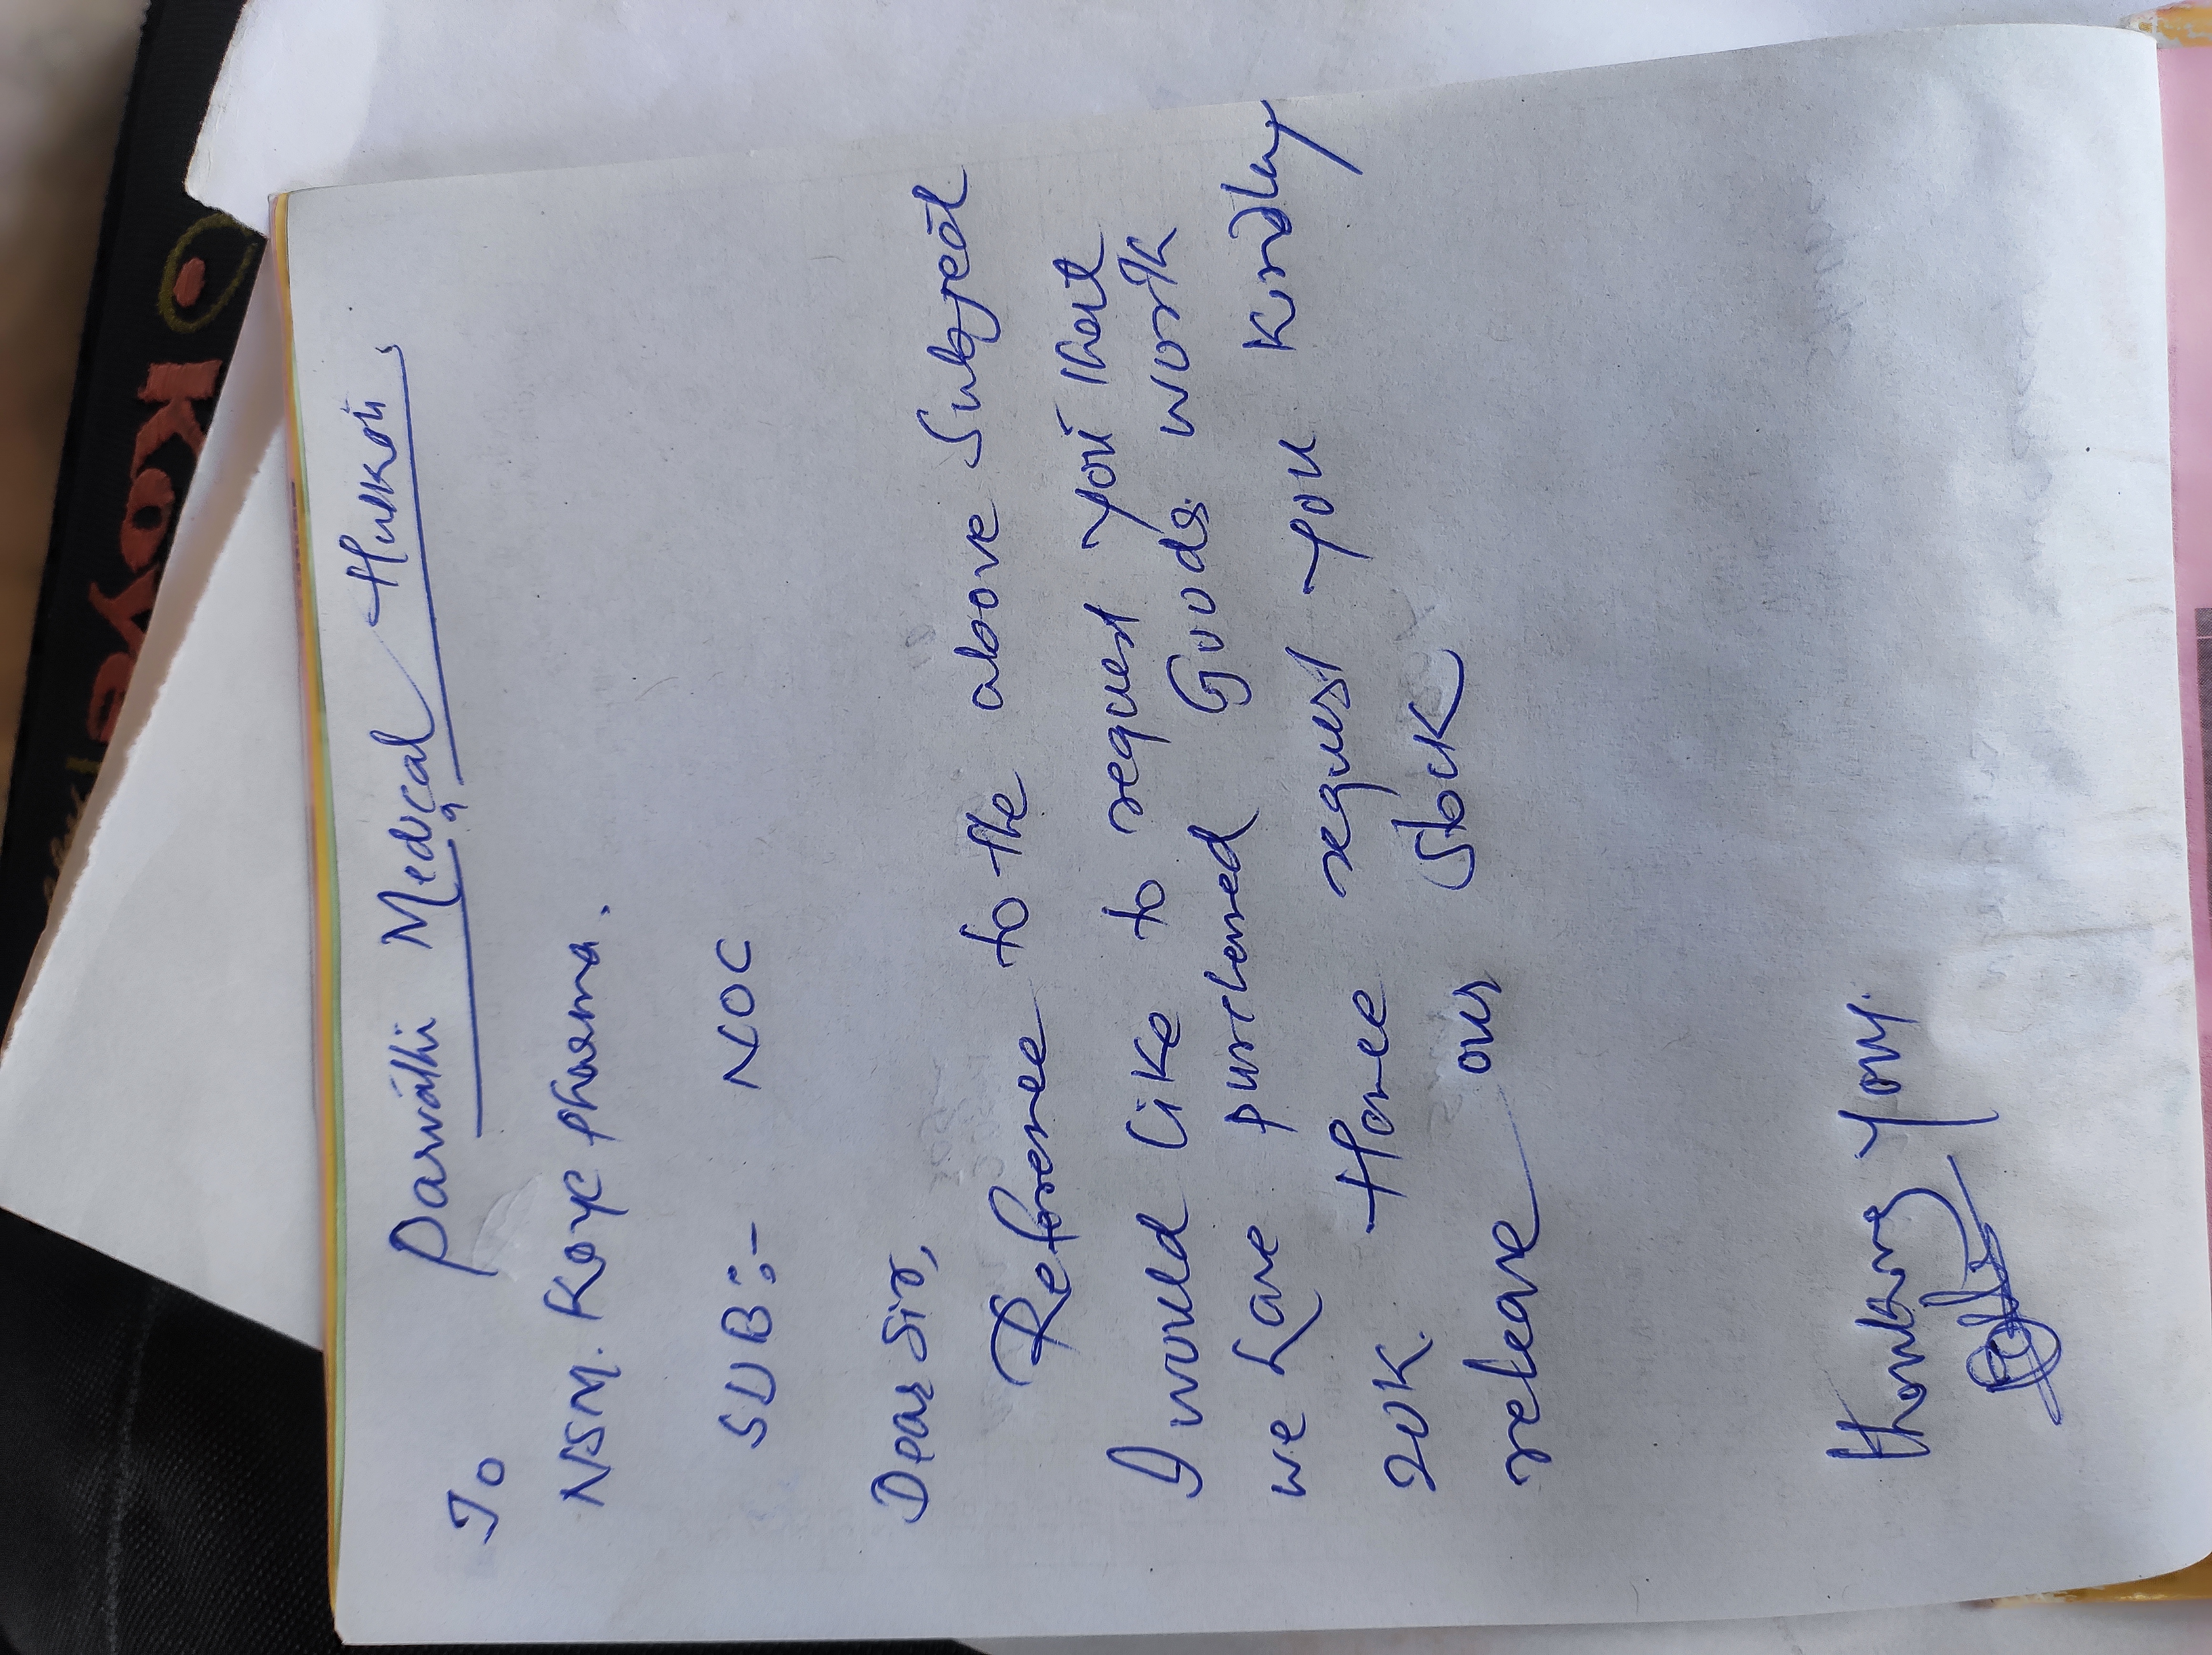 Parvathi Medical Hulkoti
To
NSM. Koye pharma.
SUB:- NOC
Dear Sir,
Reference to the above Subject
I would like to request you that
we have purchased Goods work
20K. Hence request you kindly
release our stock
thanking you.
Koye